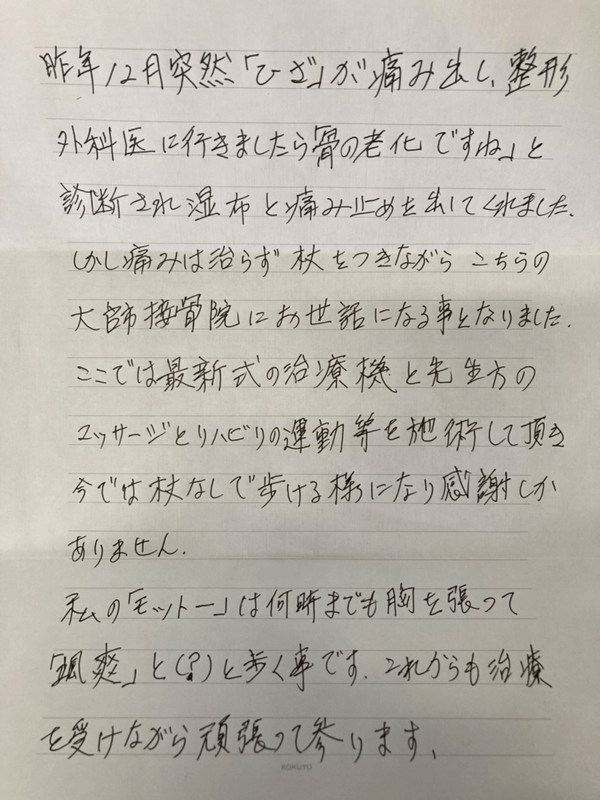 昨年12月突然「ひざ」が痛み出し、整形
外科医に行きましたら「骨の老化ですね」と
診断され湿布と痛み止めを出してくれました.
しかし痛みは治らず杖をつきながらこちらの
大師接骨院にお世話になる事となりました.
ここでは最新式の治療機と先生方の
マッサージとリハビリの運動等を施術して頂き
今では杖なしで歩ける様になり感謝しか
ありません.
私の「モットー」は何時までも胸を張って
「颯爽」と(?)と歩く事です.これからも治療
を受けながら頑張って参ります、
KOKUYO